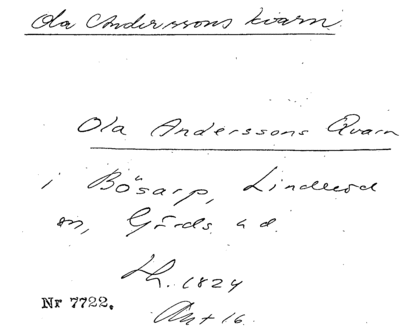 Ola Anderssons kvarn
Ola Anderssons Qvarn
i Bösarp, Linderöd
sn, Gärds hd.
Lh. 1824
Nr 7722. Akt 16